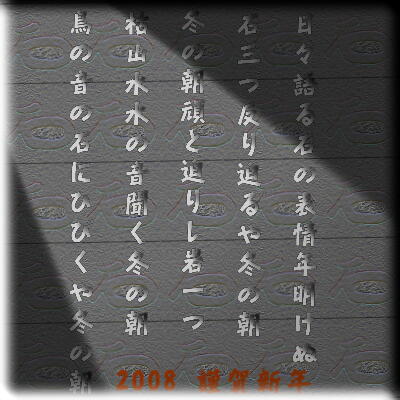 日々語る石の表情年明けぬ
石三つ反り迫るや冬の朝
冬の朝頑と迫りし岩一つ
枯山水水の音聞く冬の朝
鳥の音の石にひびくや冬の朝
2008 謹賀新年